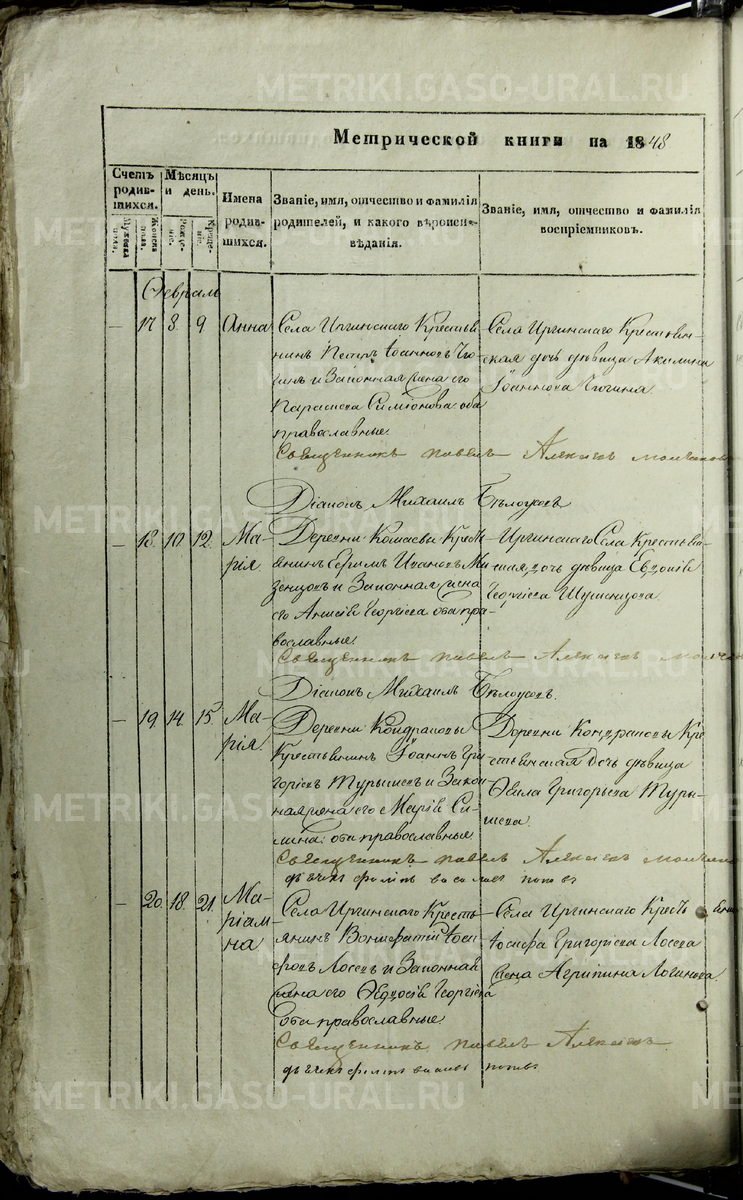 METRIKI.GASO-URAL.RU
Метрической книги на 1848
Счетъ родившихся.
Мужеска пола.
Женска пола.
Мѣсяцъ и день.
Рожденіе.
Крещеніе.
Имена родившихся.
Званіе, имя, отчество и фамилія
родителей, и какого вѣроиспо-
вѣданія.
Званіе, имя, отчество и фамилія
воспріемниковъ.
Февраль
17 8 9 Анна
Села Иргинскаго Крестья
нинъ Петръ Іоанновъ
и Законная жена его
Параскева Симіонова оба
православные.
Села Иргинскаго Крестьян-
ская дочь дѣвица Акилина
Іоаннова
Священникъ Павелъ Алексѣевъ
Діаконъ Михаилъ Бѣлоусовъ
18. 10. 12. Ма-
рія.
Деревни Комаевы Кресть
янинъ Ефимъ Ивановъ
и Законная жена
его Анисія Георгіева оба пра-
вославные.
Иргинскаго Села Крестьян
ская дочь дѣвица Евдокія
Георгіева
Священникъ Павелъ Алексѣевъ
Діаконъ Михаилъ Бѣлоусовъ.
19. 14. 15. Ма-
рія.
Деревни Кондраковы
Крестьянинъ Іоаннъ Гри
горіевъ Турышевъ и Закон
ная жена его Марія Си-
мина оба православные
Деревни Кондраковы Кре
стьянская дочь дѣвица
Ѳекла Григорьева Туры-
шева.
Священникъ Павелъ Алексѣевъ
20. 18. 21. Ма-
ріам-
на
Села Иргинскаго Кресть
янинъ Вонифатій Іоси-
фовъ Лосевъ и Законная
жена его Ѳедосія Георгіева
оба православные.
Села Иргинскаго Крестьянина
Іосифа Григоріева Лосева
жена Агрипина Логинова
Священникъ Павелъ Алексѣевъ